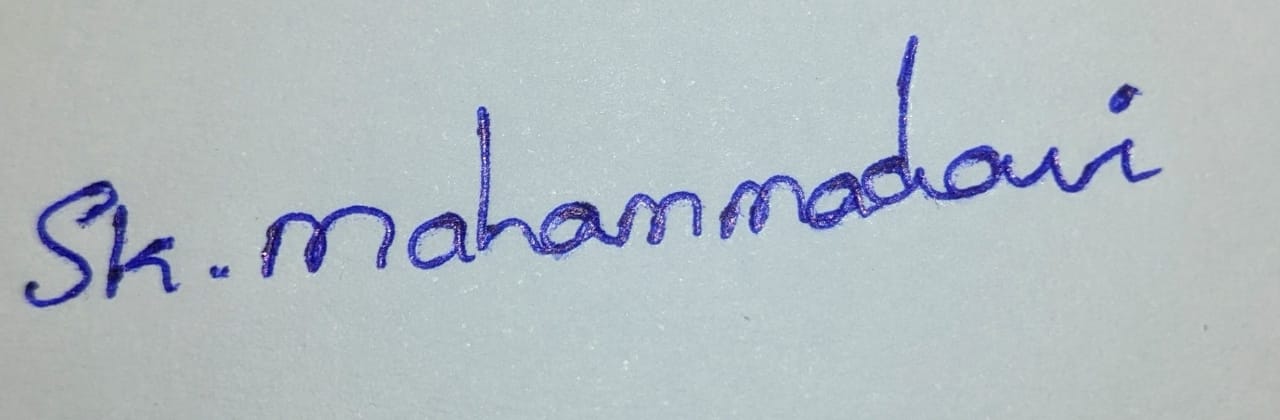 Sk. mahammadavi